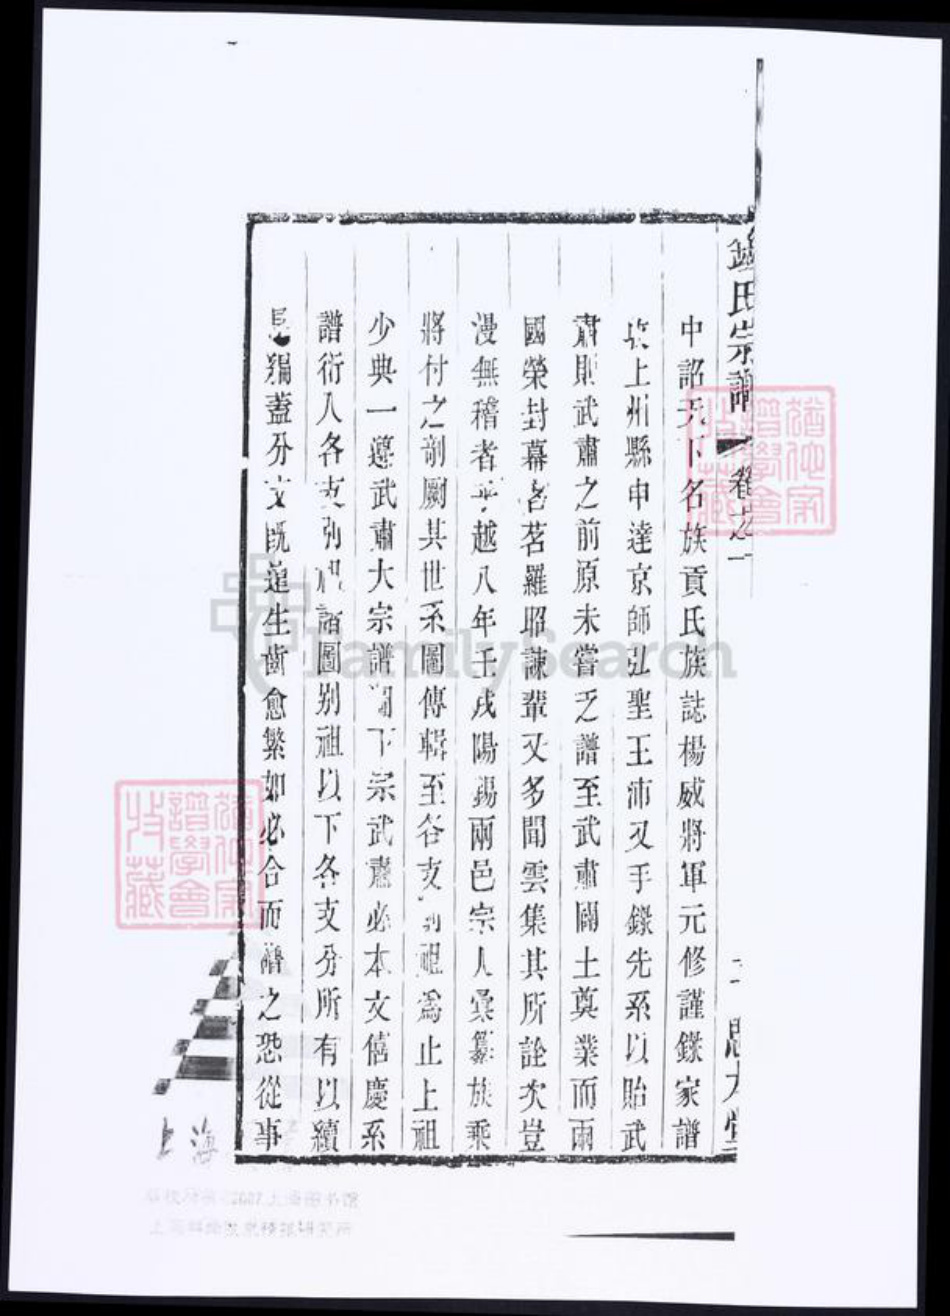 氏宗譜 卷之一
中詔天下名族貢氏族誌楊威將軍元修謹錄家譜
上州縣申達京師弘聖王沛又手錄先系以貽武
肅則武肅之前原未嘗乏譜至武肅闢土奠業而兩
國榮封幕客若羅昭諫輩又多聞雲集其所詮次豈
漫無稽者乎越八年壬戌陽錫兩邑宗人彙纂族乘
將付之剞劂其世系圖傳輯至各支祖為止上祖
少典一遵武肅大宗譜下宗武肅必本文僖慶系
譜衍入各支諸圖別祖以下各支分所有以續
長編蓋分支既遠生齒愈繁如必合而譜之恐從事
猶他家譜學會收藏
猶他家譜學會收藏
FamilySearch
上海